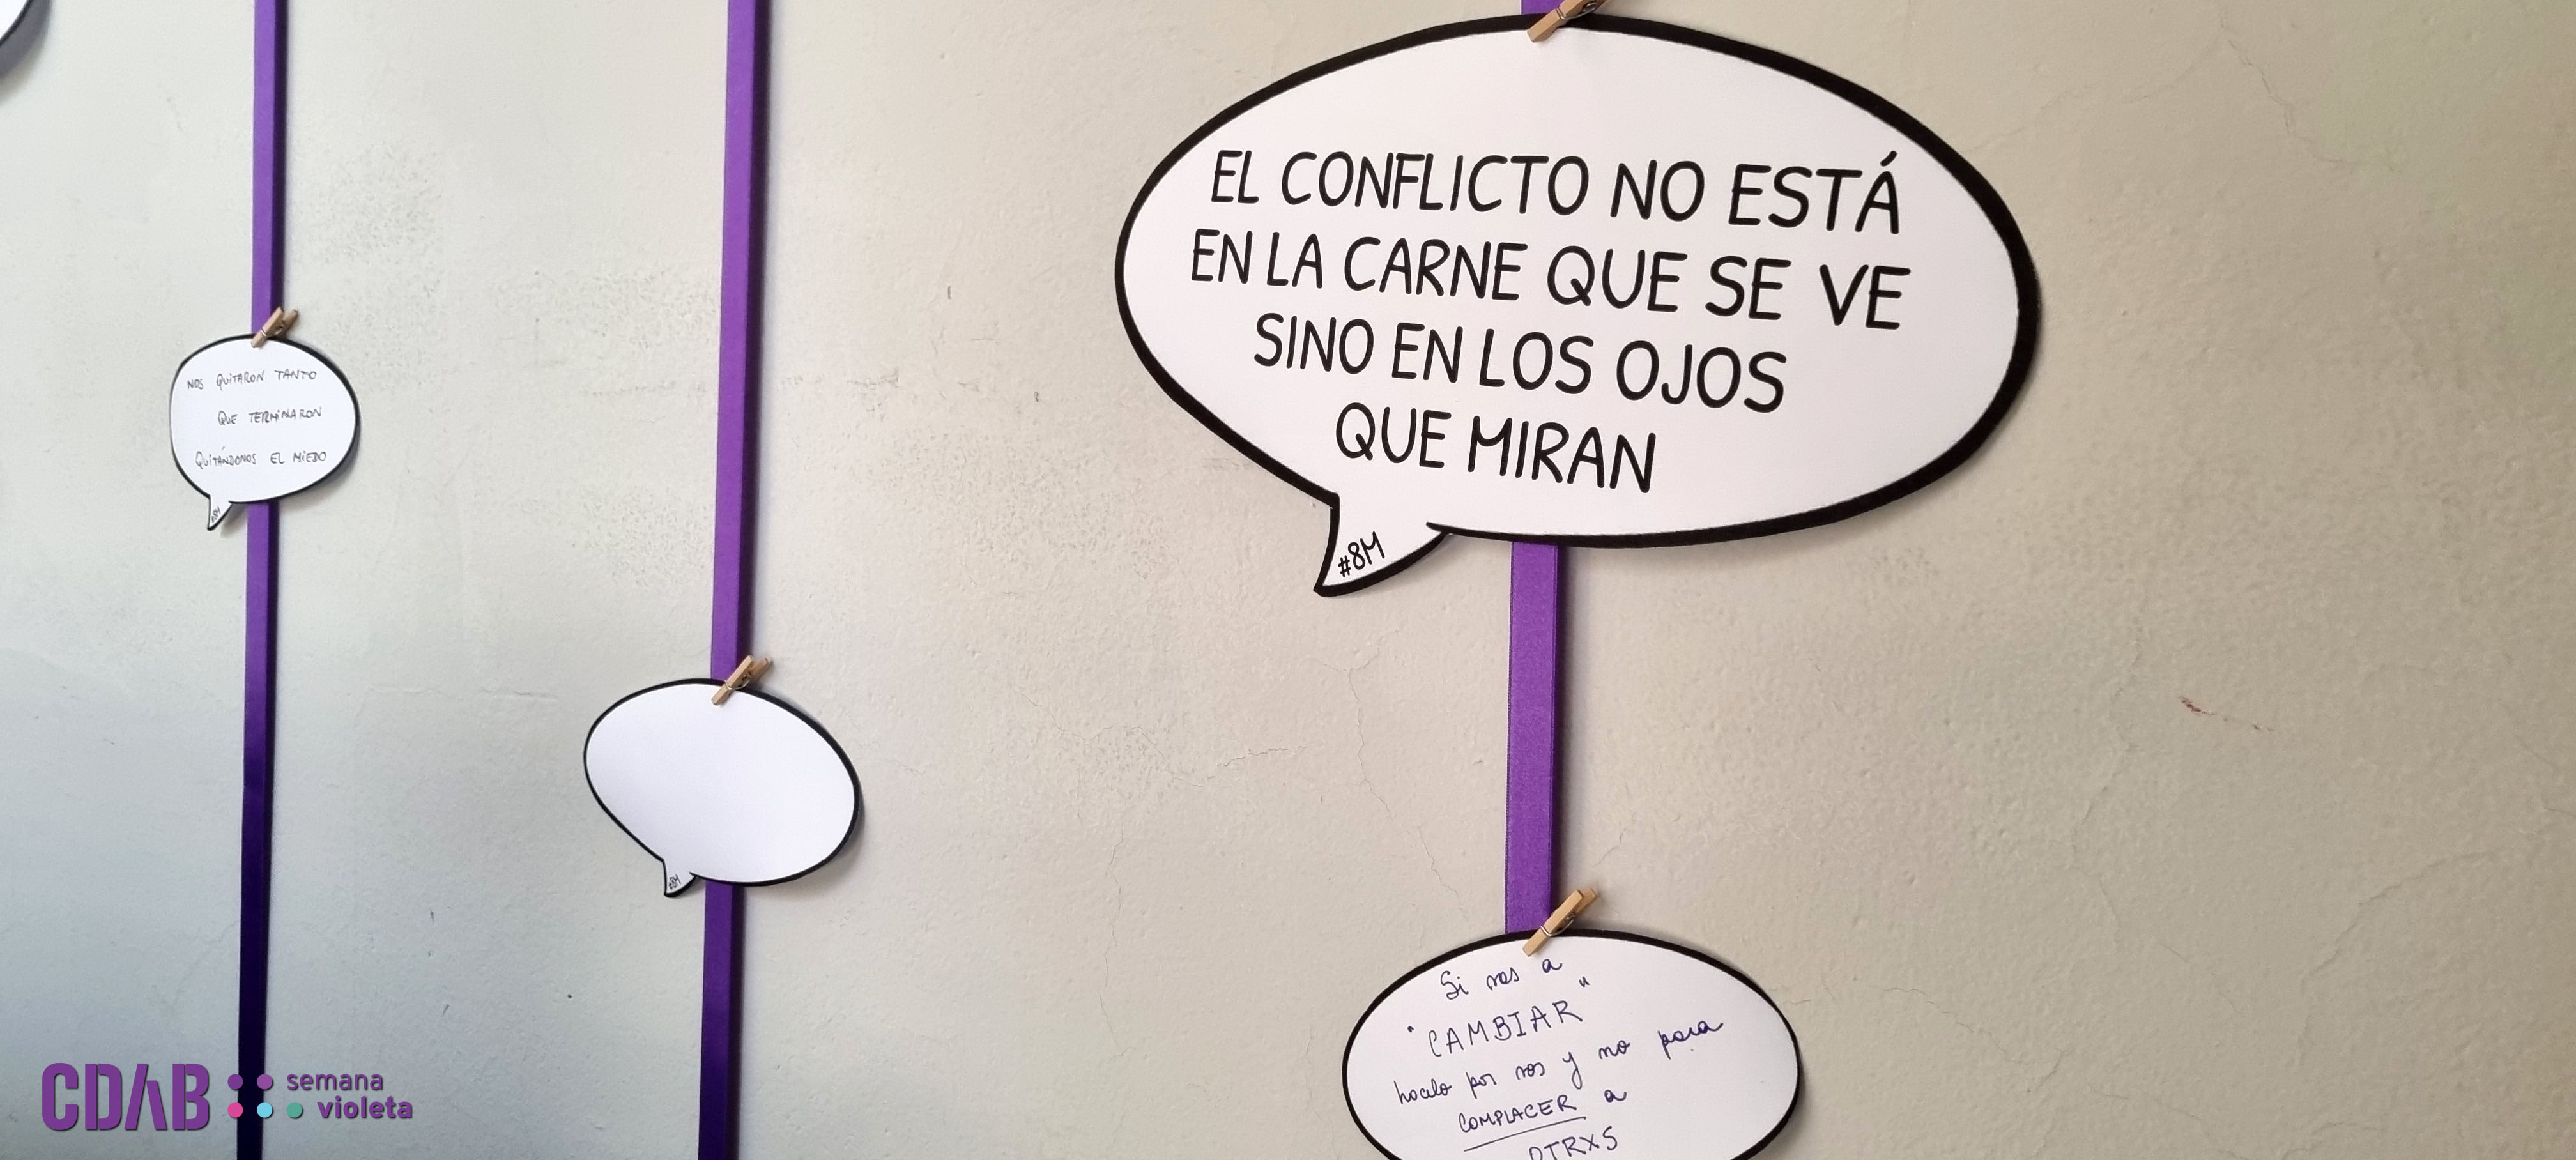 EL CONFLICTO NO ESTÁ
EN LA CARNE QUE SE VE
SINO EN LOS OJOS
QUE MIRAN
#8M
NOS QUITARON TANTO
QUE TERMINARON
QUITÁNDONOS EL MIEDO
#8M
#8M
Si vas a
"CAMBIAR"
hacelo por vos y no para
COMPLACER a
OTRXS
CDAB semana
violeta